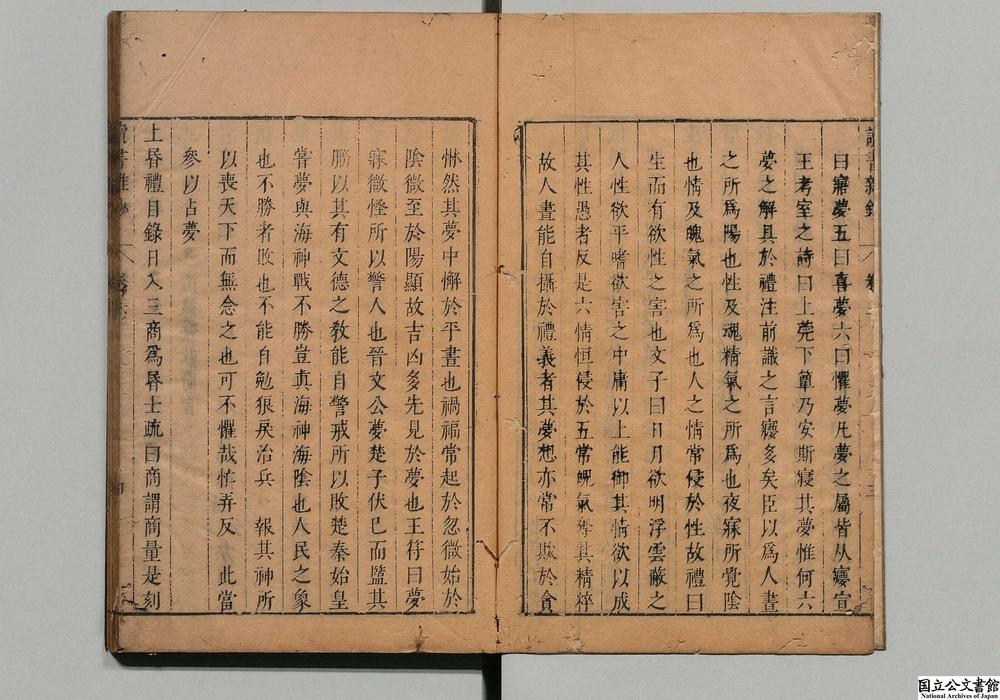 曰寤夢五曰喜夢六曰懼夢凡夢之屬皆从㝱宣
王考室之詩曰上莞下簟乃安斯寢其夢惟何六
夢之解具於禮注前識之言㝱多矣臣以爲人晝
之所爲陽也性及魂精氣之所爲也夜寐所覺陰
也情及魄氣之所爲也人之情常侵於性故禮曰
生而有欲性之害也文子曰日月欲明浮雲蔽之
人性欲平嗜欲害之中庸以上能御其情欲以成
其性愚者反是六情恒侵於五常魄氣奪其精粹
故人晝能自攝於禮義者其夢想亦常不欺於貪
惏然其夢中懈於平晝也禍福常起於忽微始於
陰微至於陽顯故吉凶多先見於夢也王符曰夢
寐徵怪所以警人也晉文公夢楚子伏已而盬其
腦以其有文德之敎能自警戒所以敗楚秦始皇
嘗夢與海神戰不勝豈眞海神海陰也人民之象
也不勝者敗也不能自勉狠戾治兵 報其神所
以喪天下而無念之也可不懼哉忙弄反 此當
參以占夢
上昏禮目錄日入三商爲昏士疏曰商謂商量是刻
国立公文書館
National Archives of Japan